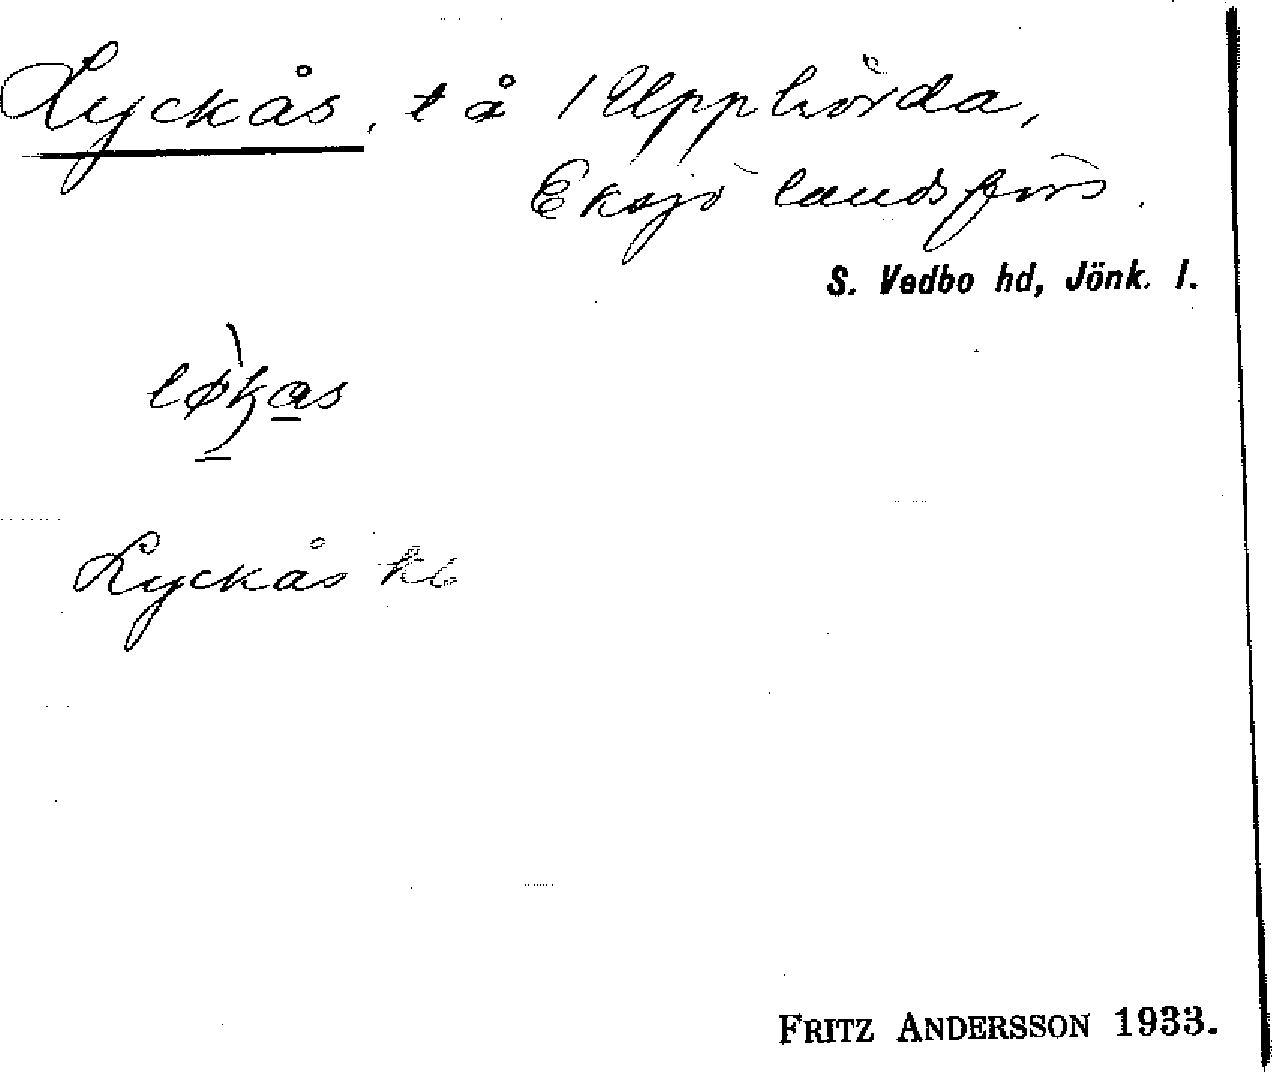 Lyckås, t å 1 Upphörda,
Eksjö landsförs.
S. Vedbo hd, Jönk. l.
løkas
Lyckås kb
FRITZ ANDERSSON 1933.